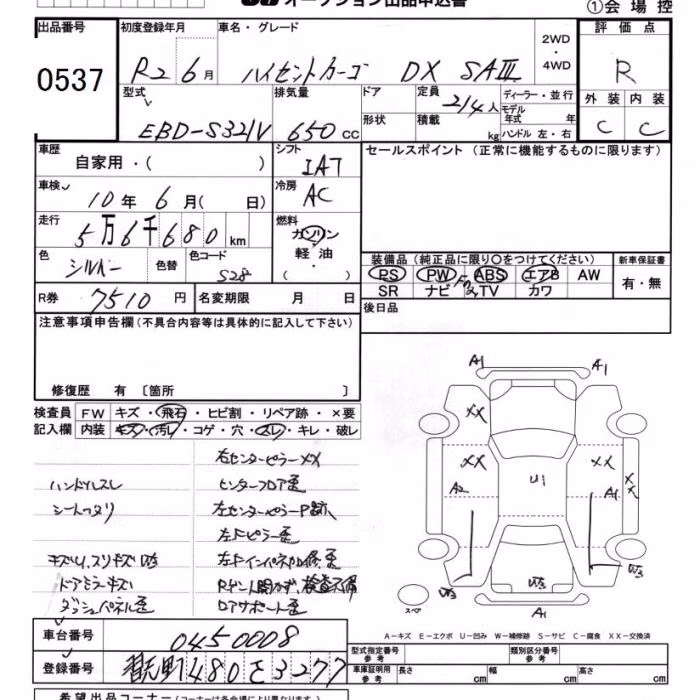 オークション出品申込書
①会場控
出品番号
0537
初度登録年月
R2 6月
車名・グレード
ハイゼットカーゴ DX SAⅢ
2WD
・
4WD
評価点
R
外装 内装
C C
型式
EBD-S321V
排気量
650 CC
ドア
形状
定員
2/4人
積載 kg
ディーラー・並行
モデル年式 年
ハンドル 左・右
車歴
自家用・( )
シフト
IAT
セールスポイント (正常に機能するものに限ります)
車検
10年 6月( 日)
冷房
AC
走行
5万6千680km
燃料
ガソリン
軽油
・
( )
色
シルバー
色替
色コード
S28
装備品 (純正品に限り○をつけてください)
PS PW ABS エアB AW
SR ナビ TV カワ
新車保証書
有・無
R券
7510円
名変期限 月 日
後日品
注意事項申告欄 (不具合内容等は具体的に記入して下さい)
修復歴 有 〔箇所 〕
検査員
記入欄
FW キズ・飛石・ヒビ割・リペア跡・×要
内装 キズ・汚レ・コゲ・穴・スレ・キレ・破レ
右センターピラーXX
ハンドルスレ
センターフロア歪
シートヘタリ
左センターピラーP跡
左Fピラー歪
左Fインパネ修、歪
ドアミラーキズ
Rゲート開かず、検査不備
ダッシュパネル歪
ロアサポート歪
A1
A1
XX
XX
XX
XX
A2
U1
A1
W3
W3
W3
スペア
A1
A-キズ E-エクボ U-凹み W-補修跡 S-サビ C-腐食 XX-交換済
車台番号
0450008
登録番号
480 さ 3277
型式指定番号
参考
類別区分番号
参考
車庫証明用
参考
長さ cm
幅 cm
高さ cm
希望出品コーナー